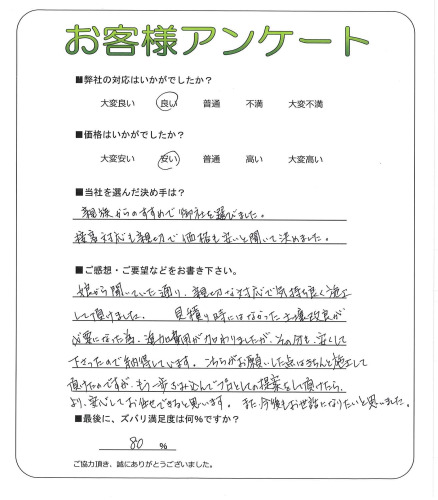 お客様アンケート
■弊社の対応はいかがでしたか？
大変良い 良い 普通 不満 大変不満
■価格はいかがでしたか？
大変安い 安い 普通 高い 大変高い
■当社を選んだ決め手は？
親族からのすすめで御社を選びました。
接客対応も親切で価格も安いと聞いて決めました。
■ご感想・ご要望などをお書き下さい。
娘から聞いていた通り、親切な対応で気持ち良く施工
して頂けました。 見積り時にはなかった土壌改良が
必要になった為、追加費用が加わりましたが、その分も安くして
下さったので納得しています。こちらがお願いした点はきちんと施工して
頂けたのですが、もう一歩ふみ込んでプロとしての提案をして頂けたら、
より、安心してお任せできると思います。また今後もお世話になりたいと思いました。
■最後に、ズバリ満足度は何％ですか？
80 ％
ご協力頂き、誠にありがとうございました。